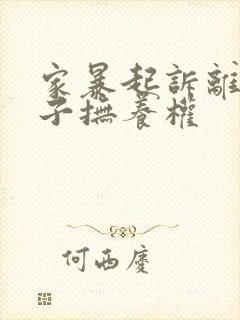 家暴起訴離
子撫養權
何西慶